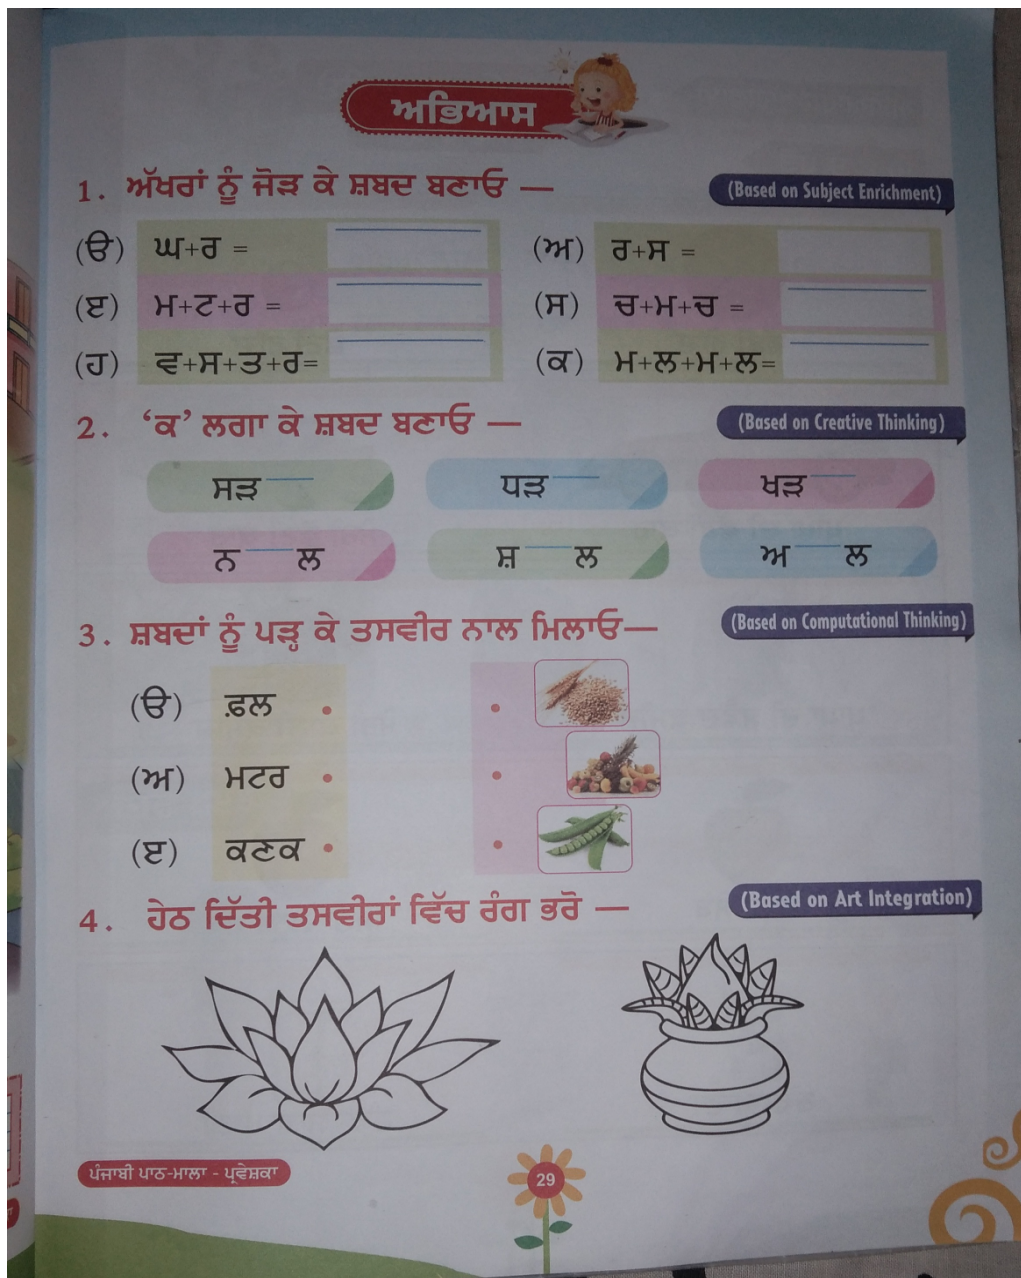 ਅਭਿਆਸ
1. ਅੱਖਰਾਂ ਨੂੰ ਜੋੜ ਕੇ ਸ਼ਬਦ ਬਣਾਓ — (Based on Subject Enrichment)
(ੳ) ਘ+ਰ = (ਅ) ਰ+ਸ =
(ੲ) ਮ+ਟ+ਰ = (ਸ) ਚ+ਮ+ਚ =
(ਹ) ਵ+ਸ+ਤ+ਰ= (ਕ) ਮ+ਲ+ਮ+ਲ=
2. ‘ਕ’ ਲਗਾ ਕੇ ਸ਼ਬਦ ਬਣਾਓ — (Based on Creative Thinking)
ਸੜ__ ਧੜ__ ਖੜ__
ਨ__ਲ ਸ਼__ਲ ਅ__ਲ
3. ਸ਼ਬਦਾਂ ਨੂੰ ਪੜ੍ਹ ਕੇ ਤਸਵੀਰ ਨਾਲ ਮਿਲਾਓ— (Based on Computational Thinking)
(ੳ) ਫ਼ਲ
(ਅ) ਮਟਰ
(ੲ) ਕਣਕ
4. ਹੇਠ ਦਿੱਤੀ ਤਸਵੀਰਾਂ ਵਿੱਚ ਰੰਗ ਭਰੋ — (Based on Art Integration)
ਪੰਜਾਬੀ ਪਾਠ-ਮਾਲਾ - ਪ੍ਰਵੇਸ਼ਕਾ
29